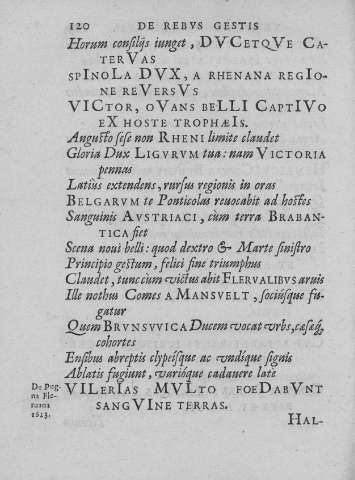 120 DE REBVS GESTIS
Horum consilijs iunget, DVCETQVE CA-
TERVAS
SPINOLA DVX, A RHENANA REGIO-
NE REVERSVS
VICTOR, OVANS BELLI CAPTIVO
EX HOSTE TROPHÆIS.
Angusto sese non RHENI limite claudet
Gloria Dux LIGVRVM tua: nam VICTORIA
pennas
Latius extendens, rursus regionis in oras
BELGARVM te Ponticolas reuocabit ad hostes
Sanguinis AVSTRIACI, cùm terra BRABAN-
TICA fiet
Scena noui belli: quod dextro & Marte sinistro
Principio gestum, felici sine triumphus
Claudet, tunc cùm victus abit FLERVALIBVS aruis
Ille nothus Comes A MANSVELT, sociúsque fu-
gatur
Quem BRVNSVVICA Ducem vocat vrbs, cæsæq;
cohortes
Ensibus abreptis clypeísque ac vndíque signis
Ablatis fugiunt, varióque cadauere latè
De Pug-
na Fle-
ruana
1623.
VILERIAS MVLTO FOEDABVNT
SANGVINE TERRAS.
HAL-